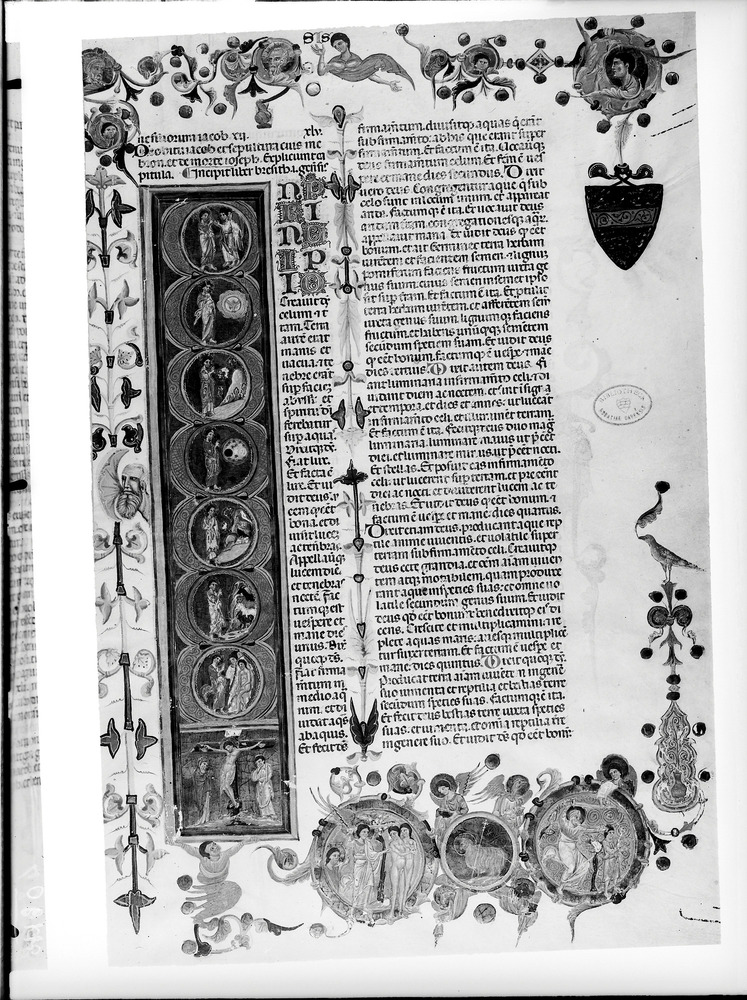 SIS
ne filiorum iacob xij. xlv.
De obitu iacob et sepultura eius in e
bron. et de morte ioseph. Expliciunt ca
pitula. Incipit liber bresith. i. genesis.
IN
PRI
NCI
PIO
Creavit ds
celum et t̄
ram. Terra
aut̄ erat
inanis et
vacua. et te
nebre erāt
sup faciē
abyssi: et
spiritus dī
ferebatur
sup aquas.
Dixitq; ds.
Fiat lux.
Et facta ē
lux. Et vi
dit deus lu
cem q̄ eēt
bona. et di
visit lucē
a tenebris.
Appellavitq;
lucem diē
et tenebras
noctē. Fac
tumq; est
vespere et
mane dies
unus. Dix
quoq; ds.
Fiat firma
mtum in
medio aq
rum. et di
vidat aqs
ab aquis.
Et fecit ds
firmamtum. divisitq; aquas q̄ erāt
sub firmamto. ab his que erant super
firmamtum. Et factum ē ita. Vocavitq;
deus firmamtum celum. Et fcm ē ves
pere et mane dies secundus. Dixit
vero deus. Congregentur aque q̄ sub
celo sunt in locum unum. et appareat
arida. factumq; ē ita. Et vocavit deus
aridam terram. congregationesq; aqr̄
appellavit maria. Et vidit deus q̄ eēt
bonum. et ait. Germinet terra herbam
virentem et facientem semen. et lignum
pomiferum faciens fructum iuxta ge
nus suum. cuius semen in semet ipso
sit sup t̄ram. Et factum ē ita. Et ptulit
terra herbam virentem. et afferētem sem̄
iuxta genus suum. lignumq; faciens
fructum. et habens unumquodq; sementem
secundum speciem suam. Et vidit deus
q̄ eēt bonum. factumq; ē vespe et mane
dies tertius. Dixit autem deus. Fi
ant luminaria in firmamto celi. et di
vidant diem ac noctem. et sint in signa
et tempora. et dies et annos. ut luceāt
in firmamto celi. et illuminent terram.
Et factum ē ita. Fecitq; deus duo mag
luminaria. luminare maius ut p̄eēt
diei. et luminare minus. ut p̄eēt nocti.
Et stellas. Et posuit eas in firmamēto
celi. ut lucerent sup terram. et pre eent
diei ac nocti. et dividerent lucem ac te
nebras. Et vidit deus q̄ eēt bonum. et
factum ē vespe et mane. dies quartus.
Dixit etiam deus. producant aque rep
tile anime viventis. et volatile super
terram sub firmamēto celi. Creavitq;
deus cete grandia. et oēm aīam viven
tem atq; motabilem. quam produxe
rant aque in species suas. et omne vo
latile secundum genus suum. Et vidit
deus qd eēt bonum. benedixitq; eis di
cens. Crescite et multiplicamini. et re
plete aquas maris. avesq; multiplicē
tur super terram. Et factum ē vespe et
mane. dies quintus. Dixit quoq; ds.
Producat terra aīam viventē in genere
suo. iumenta et reptilia et bestias terre
secundum species suas. factumq; ē ita.
Et fecit deus bestias terre iuxta species
suas. et iumenta. et omīa reptilia t̄re
in genere suo. Et vidit ds qd eēt bonū